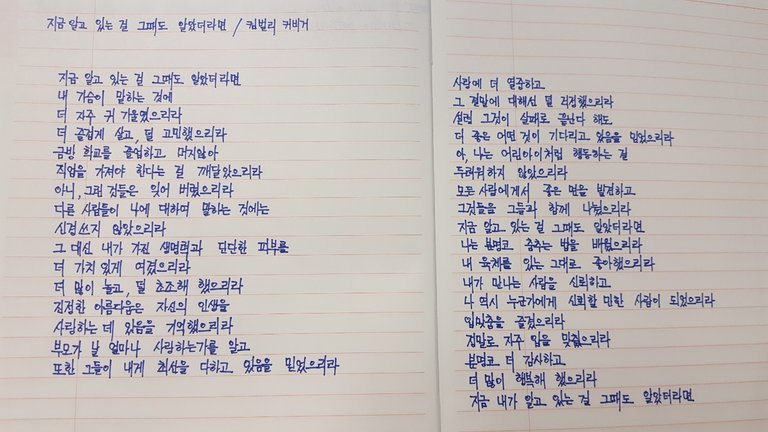 지금 알고 있는 걸 그때도 알았더라면 / 킴벌리 커버거
지금 알고 있는 걸 그때도 알았더라면
내 가슴이 말하는 것에
더 자주 귀 기울였으리라
더 즐겁게 살고, 덜 고민했으리라
금방 학교를 졸업하고 머지않아
직업을 가져야 한다는 걸 깨달았으리라
아니, 그런 것들은 잊어 버렸으리라
다른 사람들이 나에 대하여 말하는 것에는
신경쓰지 않았으리라
그 대신 내가 가진 생명력과 단단한 피부를
더 가치 있게 여겼으리라
더 많이 놀고, 덜 초조해 했으리라
진정한 아름다움은 자신의 인생을
사랑하는 데 있음을 기억했으리라
부모가 날 얼마나 사랑하는가를 알고
또한 그들이 내게 최선을 다하고 있음을 믿었으리라
사랑에 더 열중하고
그 결말에 대해선 덜 걱정했으리라
설령 그것이 실패로 끝난다 해도
더 좋은 어떤 것이 기다리고 있음을 믿었으리라
아, 나는 어린아이처럼 행동하는 걸
두려워하지 않았으리라
모든 사람에게서 좋은 면을 발견하고
그것들을 그들과 함께 나눴으리라
지금 알고 있는 걸 그때도 알았더라면
나는 분명코 춤추는 법을 배웠으리라
내 육체를 있는 그대로 좋아했으리라
내가 만나는 사람을 신뢰하고
나 역시 누군가에게 신뢰할 만한 사람이 되었으리라
입맞춤을 즐겼으리라
정말로 자주 입을 맞췄으리라
분명코 더 감사하고
더 많이 행복해 했으리라
지금 내가 알고 있는 걸 그때도 알았더라면